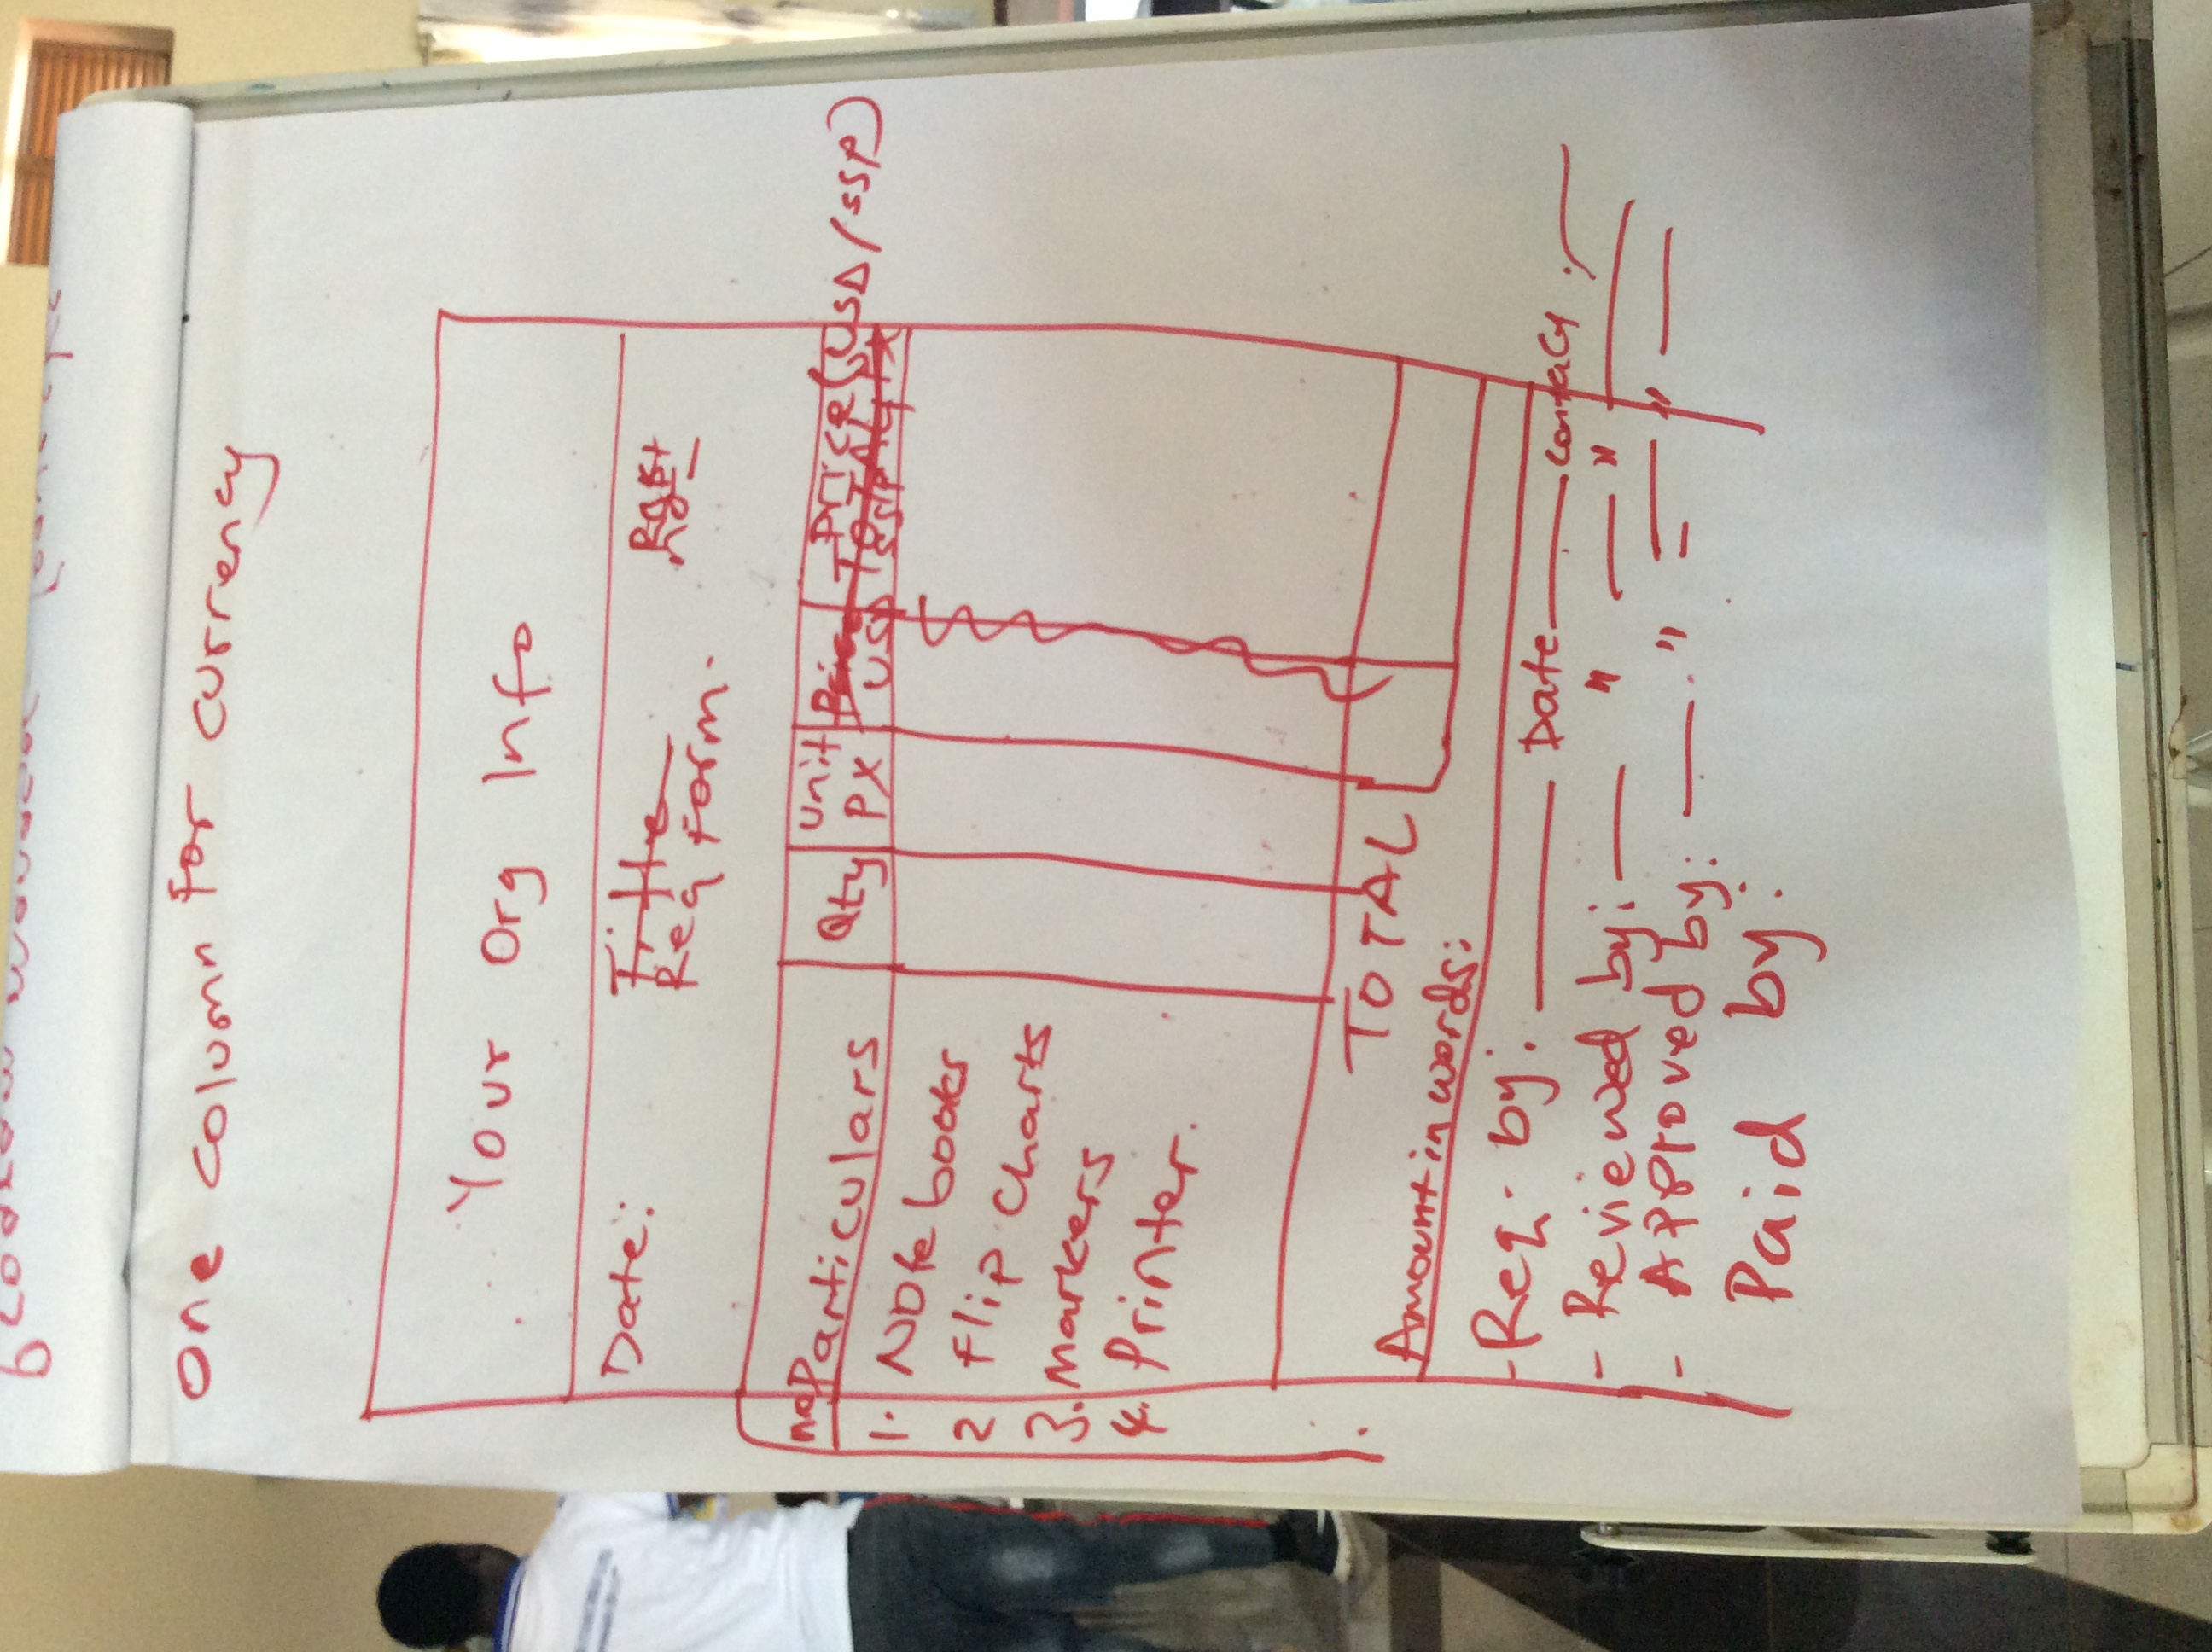 one column for currency
Your Org Info
Date: Title Rqst
Req Form. no
no Particulars Qty Unit PX Price USD TOTAL PX SSP Price (USD/SSP)
1. Note books
2 Flip Charts
3. Markers
4. Printer.
TOTAL
Amount in words:
- Req. by: ____ Date ____ contact ____
- Reviewed by: ____ " ____ " ____
- Approved by: ____ " ____ " ____
Paid by: